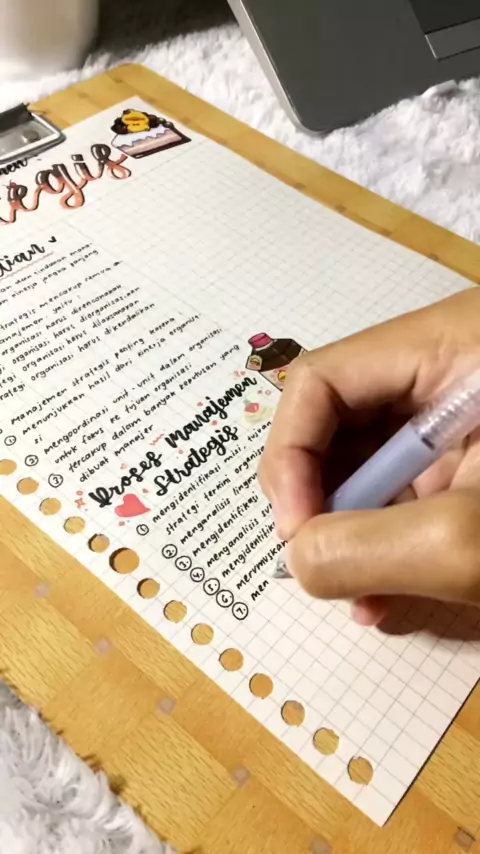 egis
strategis mencakup semua
anajemen, yaitu :
organisasi harus direncanakan
organisasi harus diorganisasikan
tegi organisasi harus dilaksanakan
trategi organisasi harus dikendalikan
manajemen strategis penting karena
① menunjukkan hasil dari kinerja organisa
si
② mengoordinasi unit-unit dalam organisasi
untuk fokus ke tujuan organisasi
③ tercakup dalam banyak keputusan yang
dibuat manajer
Proses manajemen
Strategis
① mengidentifikasi misi, tujuan
strategi terkini organisa
② menganalisis lingku
③ mengidentifikasi
④ menganalisis
⑤ mengidentifik
⑥ merumuskan
⑦ men